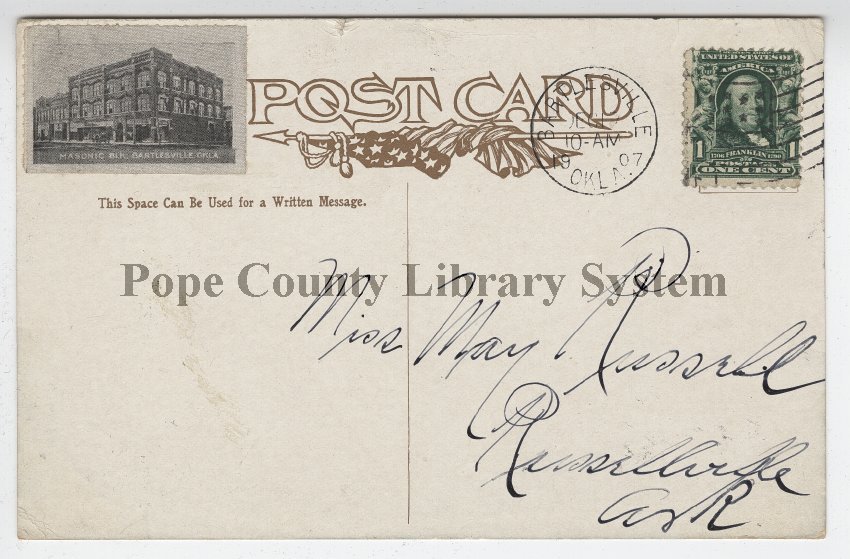 MASONIC BLK. BARTLESVILLE. OKLA.
POST CARD
BARTLESVILLE
10-AM
1907
OKLA.
UNITED STATES OF
AMERICA
1 1
1706 FRANKLIN 1790
POSTAGE
ONE CENT
This Space Can Be Used for a Written Message.
Pope County Library System
Miss May Russell
Russellville
Ark